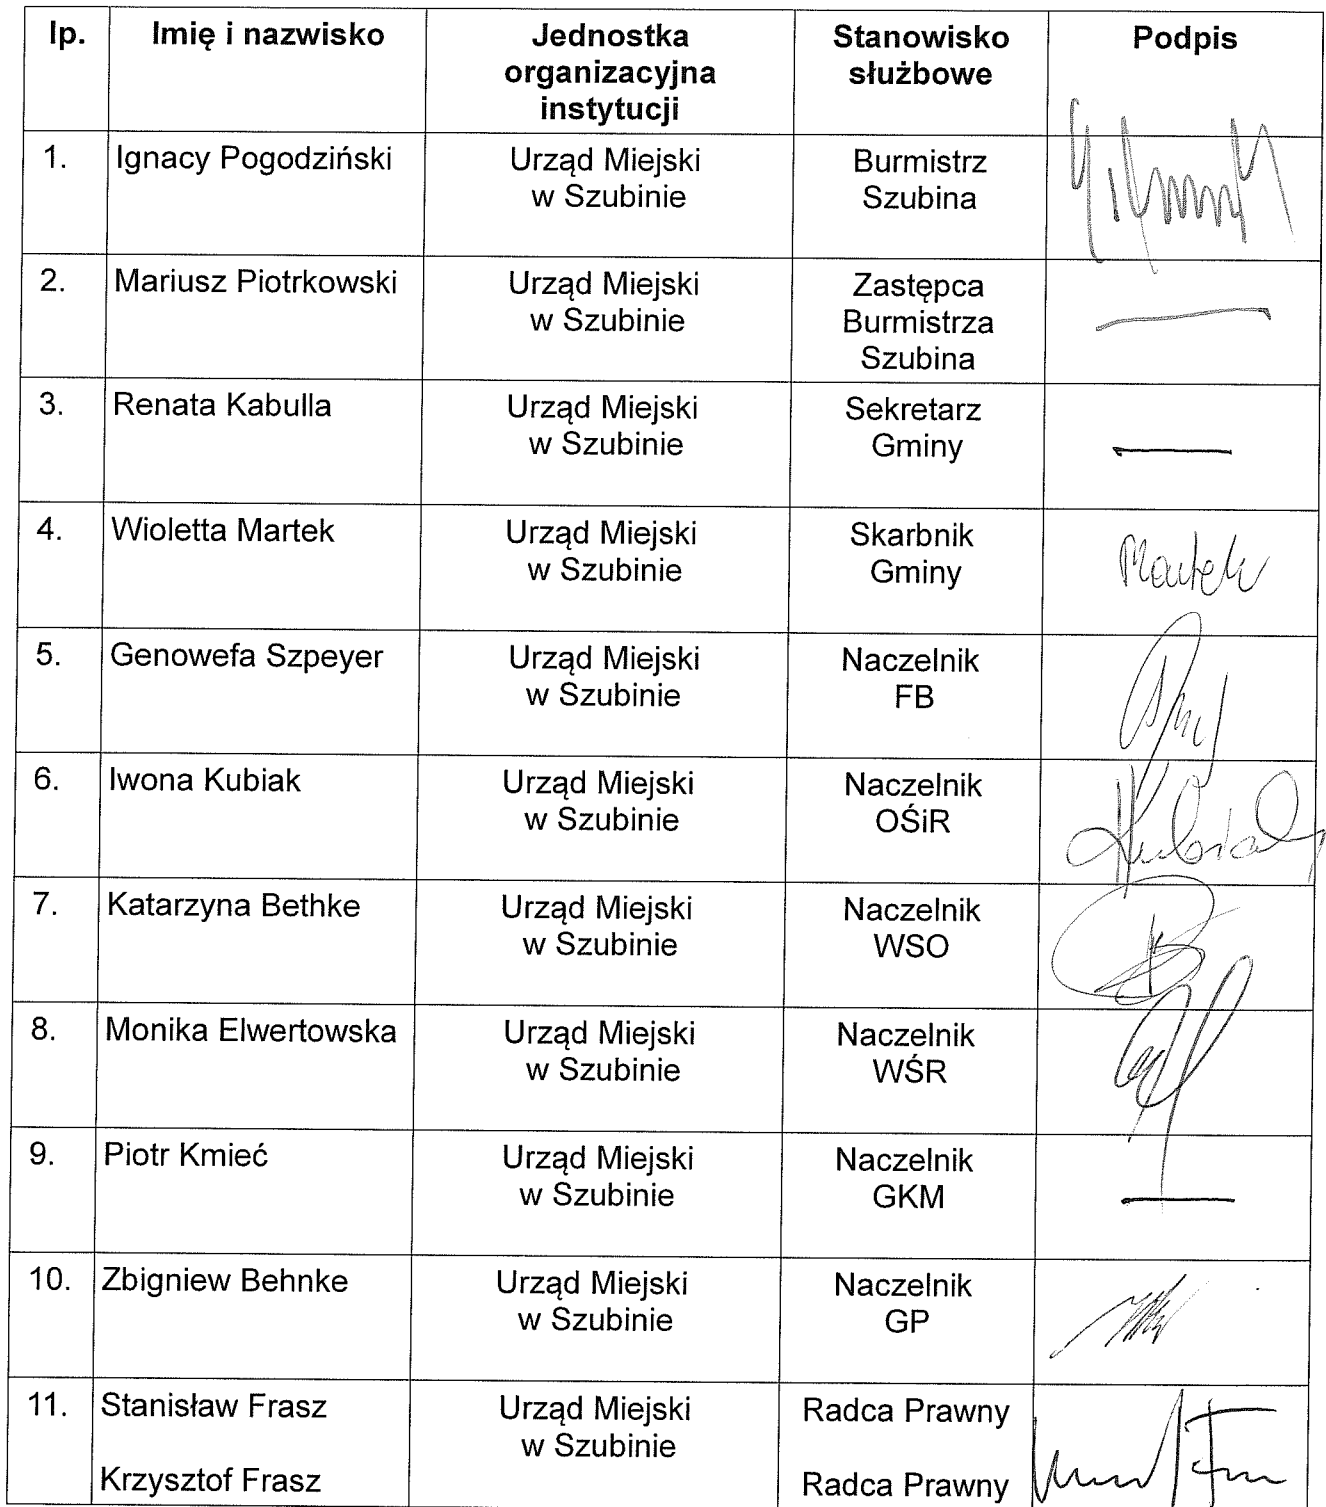 lp. Imię i nazwisko Jednostka organizacyjna instytucji Stanowisko służbowe Podpis
1. Ignacy Pogodziński Urząd Miejski w Szubinie Burmistrz Szubina
2. Mariusz Piotrkowski Urząd Miejski w Szubinie Zastępca Burmistrza Szubina —
3. Renata Kabulla Urząd Miejski w Szubinie Sekretarz Gminy —
4. Wioletta Martek Urząd Miejski w Szubinie Skarbnik Gminy Martek
5. Genowefa Szpeyer Urząd Miejski w Szubinie Naczelnik FB
6. Iwona Kubiak Urząd Miejski w Szubinie Naczelnik OŚiR Kubiak
7. Katarzyna Bethke Urząd Miejski w Szubinie Naczelnik WSO
8. Monika Elwertowska Urząd Miejski w Szubinie Naczelnik WŚR
9. Piotr Kmieć Urząd Miejski w Szubinie Naczelnik GKM —
10. Zbigniew Behnke Urząd Miejski w Szubinie Naczelnik GP
11. Stanisław Frasz Urząd Miejski w Szubinie Radca Prawny
Krzysztof Frasz Radca Prawny